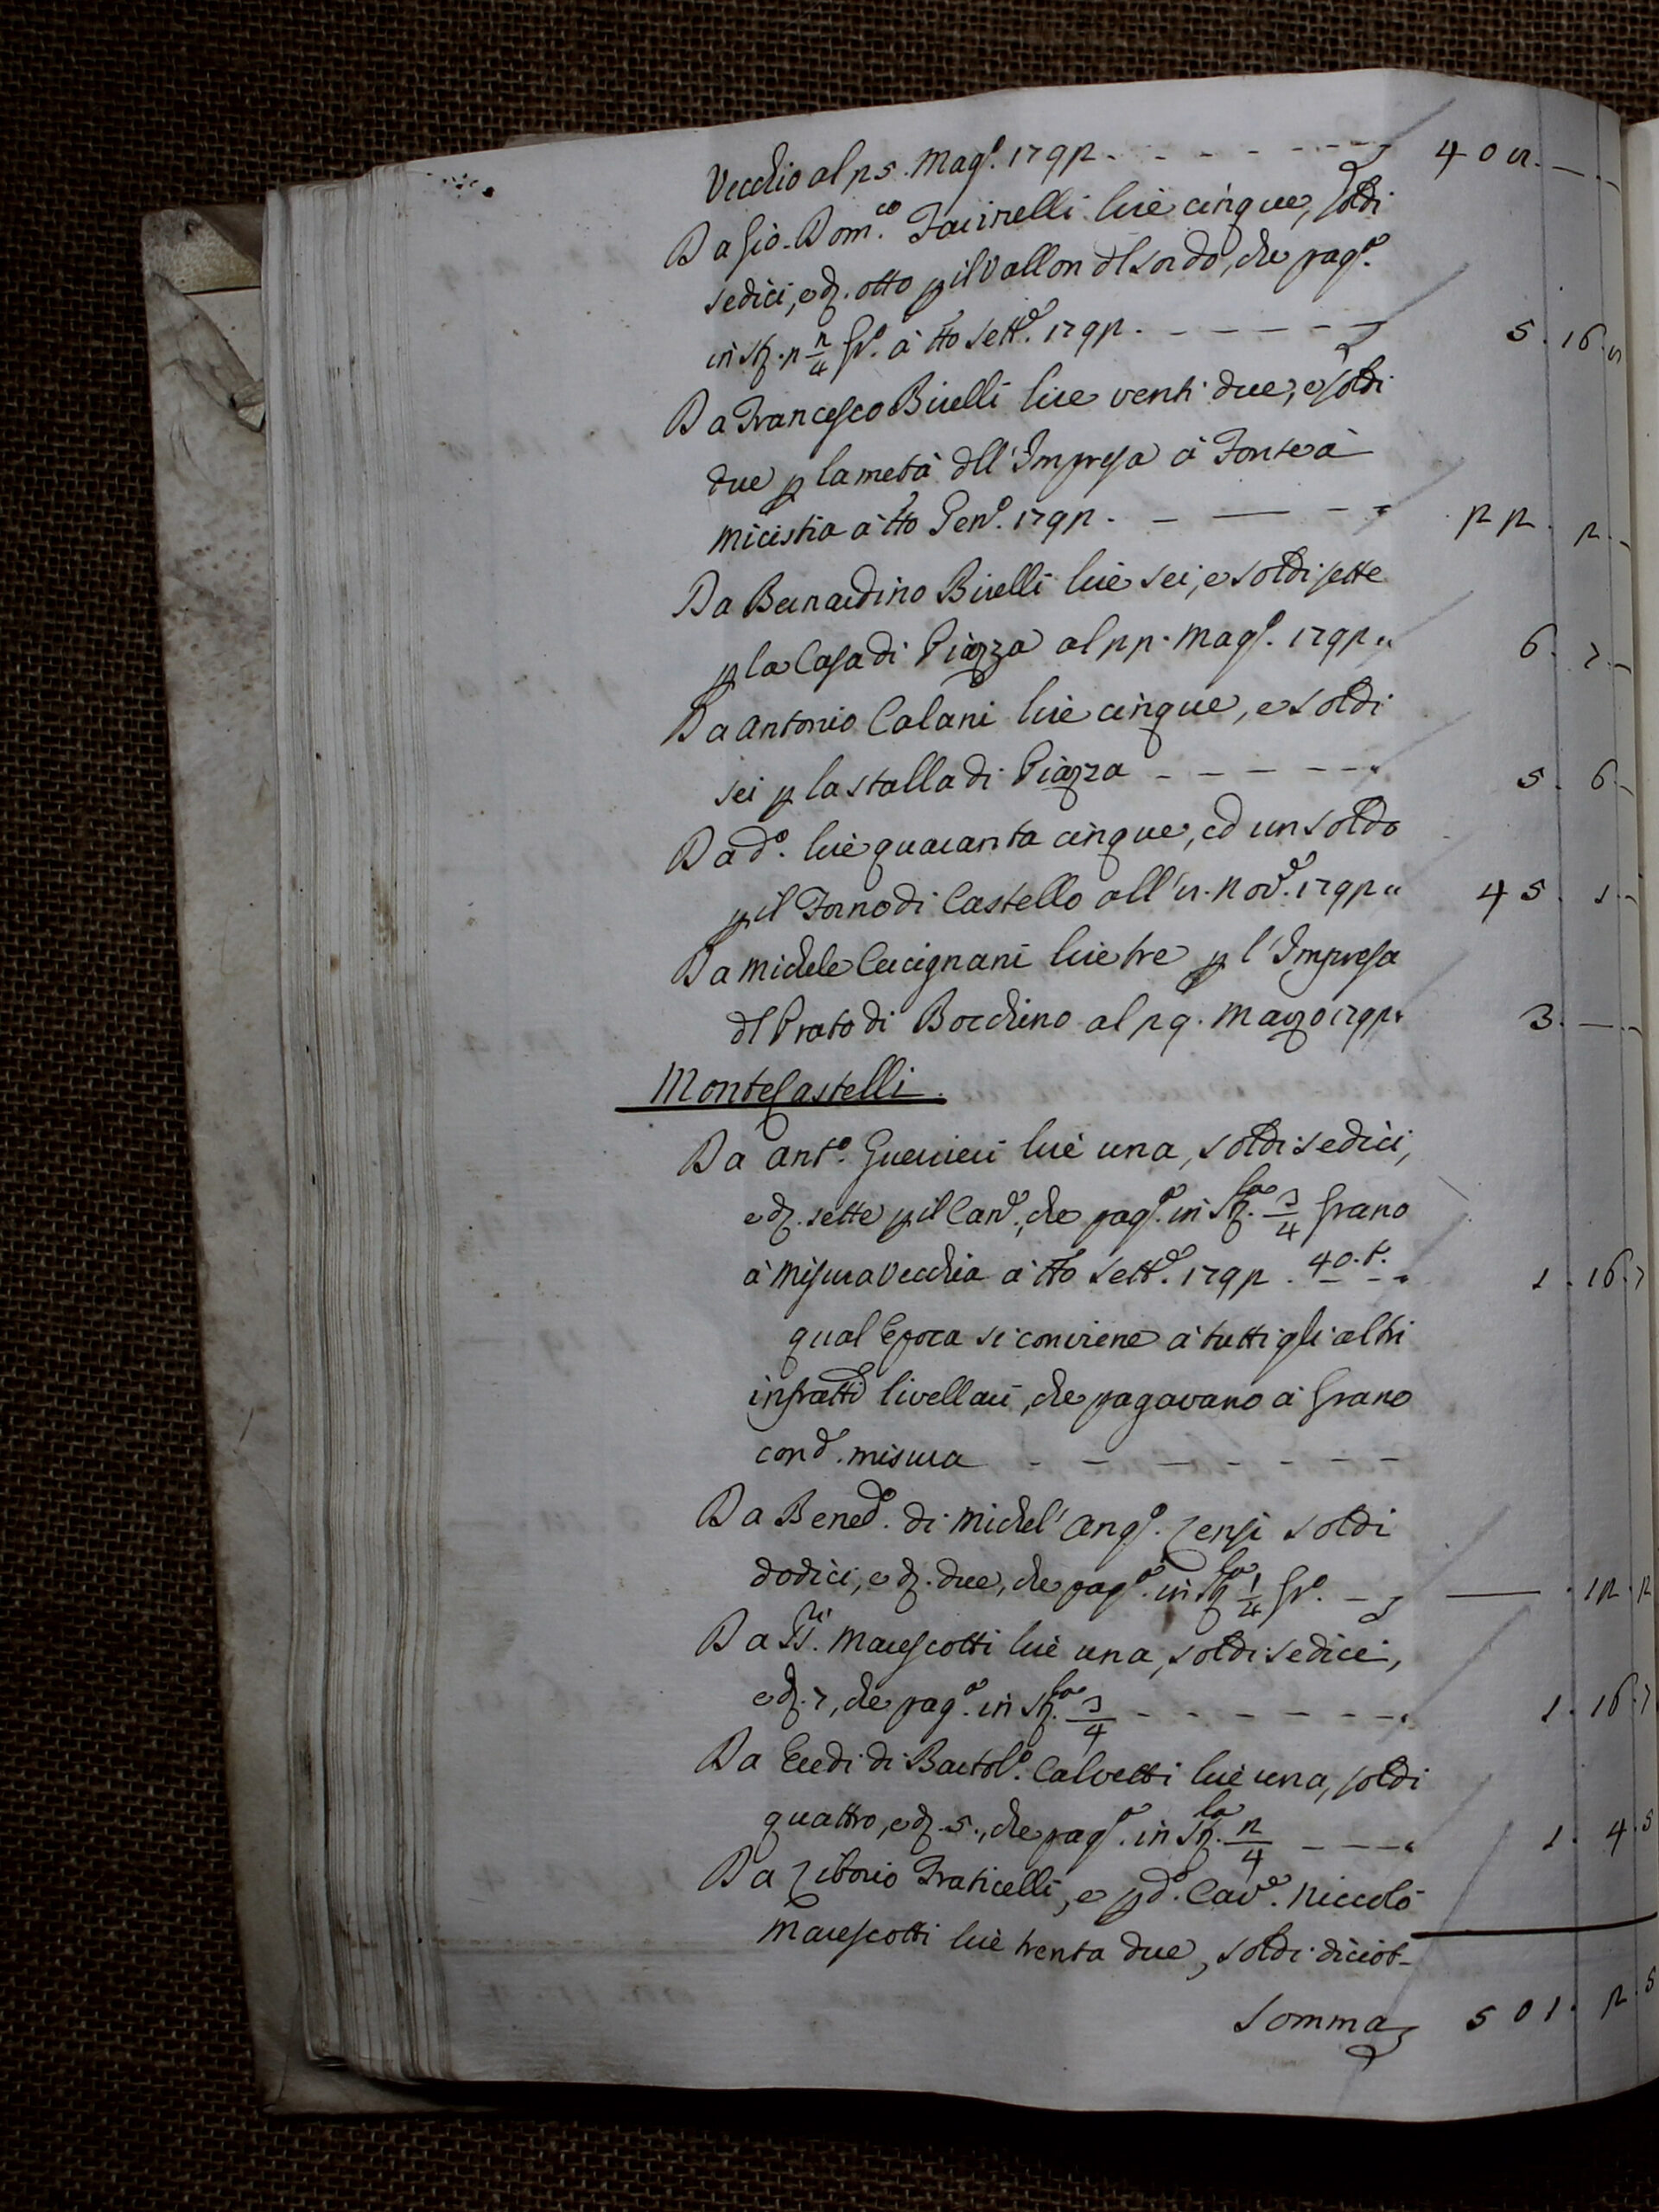 Vecchio al 25. Mag.º 1792 - - - - - - - 408. — -
Da Gio. Dom.co Facinelli lire cinque, soldi
sedici, e d. otto p il Vallon dl Sordo, che pag.a
in St. 2 2/4 Gr.º à tto Sett.e 1792. - - - - - 5. 16. 8
Da Francesco Birelli lire venti due, e soldi
due p la metà dll'Impresa à Fonte à
micistia à tto Gen.º 1792. - — - - 22. 2. -
Da Bernardino Birelli lire sei, e soldi sette
p la Casa di Piazza al 22. Mag.º 1792 " 6. 7. -
Da Antonio Calani lire cinque, e soldi
sei p la stalla di Piazza - - - - - " 5. 6. -
Da d.º lire quaranta cinque, ed un soldo
p il Forno di Castello all'8. Nov.e 1792 " 45. 1. -
Da Michele Cecignani lire tre p l'Impresa
dl Prato di Bocchino al 29. Marzo 1792 " 3. — -
MonteCastelli.
Da Ant.º Guerrieri lire una, soldi sedici,
e d. sette p il Can.e, che pag.a in St.la 3/4 Grano
à Misura Vecchia à tto Sett.e 1792. 40. t. - - " 1. 16. 7
qual Epoca si conviene à tutti gli altri
infratti livellari, che pagavano à Grano
con d.a misura - - - - - - -
Da Bened.º di Michel'Ang.º Zensi soldi
dodici, e d. due, che pag.a in St.la 1/4 Gr.º - — . 12. 2
Da SS.ri Marescotti lire una, soldi sedici,
e d. 7, che pag.a in St.la 3/4 - - - - - - " 1. 16. 7
Da Eredi di Bartol.º Calvetti lire una, soldi
quattro, e d. 5., che pag.a in St.la 2/4 - - - " 1. 4. 5
Da Ziborio Fraticelli, e p d.º Cav.e Niccolò
Marescotti lire trenta due, soldi diciot-
Somma 501. 2. 5